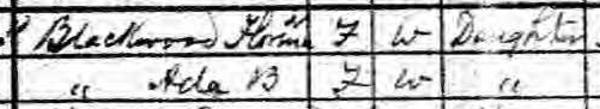 Blackwood Florina F W Daughter
" Ada B F W "